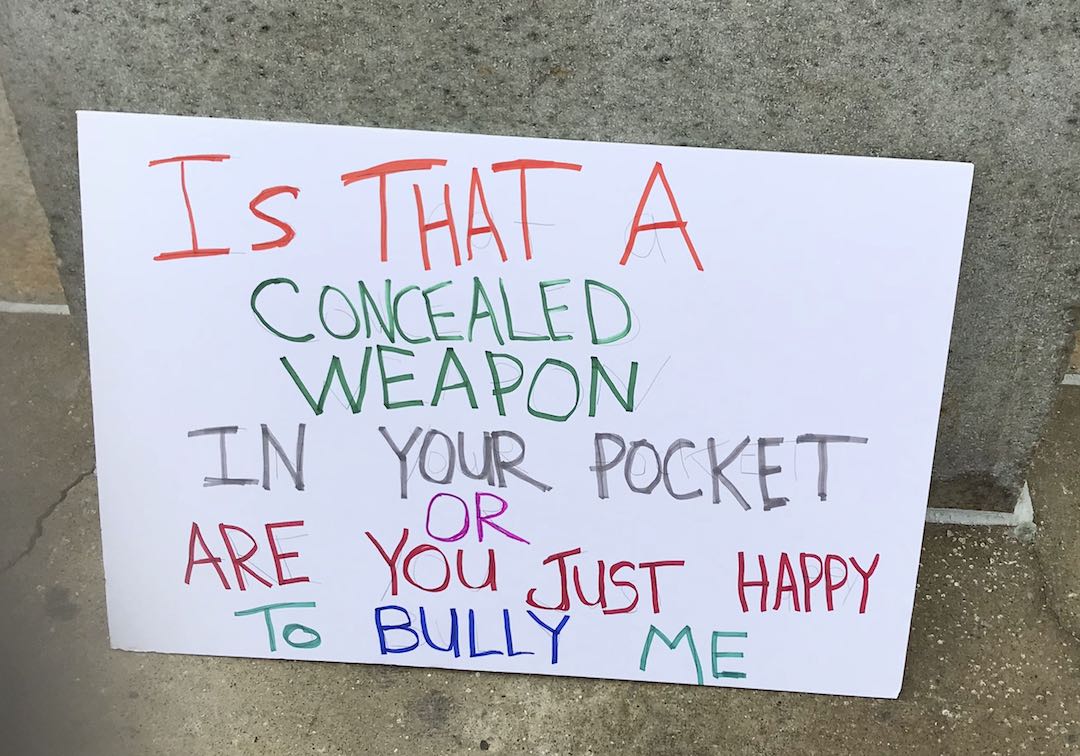 IS THAT A
CONCEALED
WEAPON
IN YOUR POCKET
OR
ARE YOU JUST HAPPY
TO BULLY ME